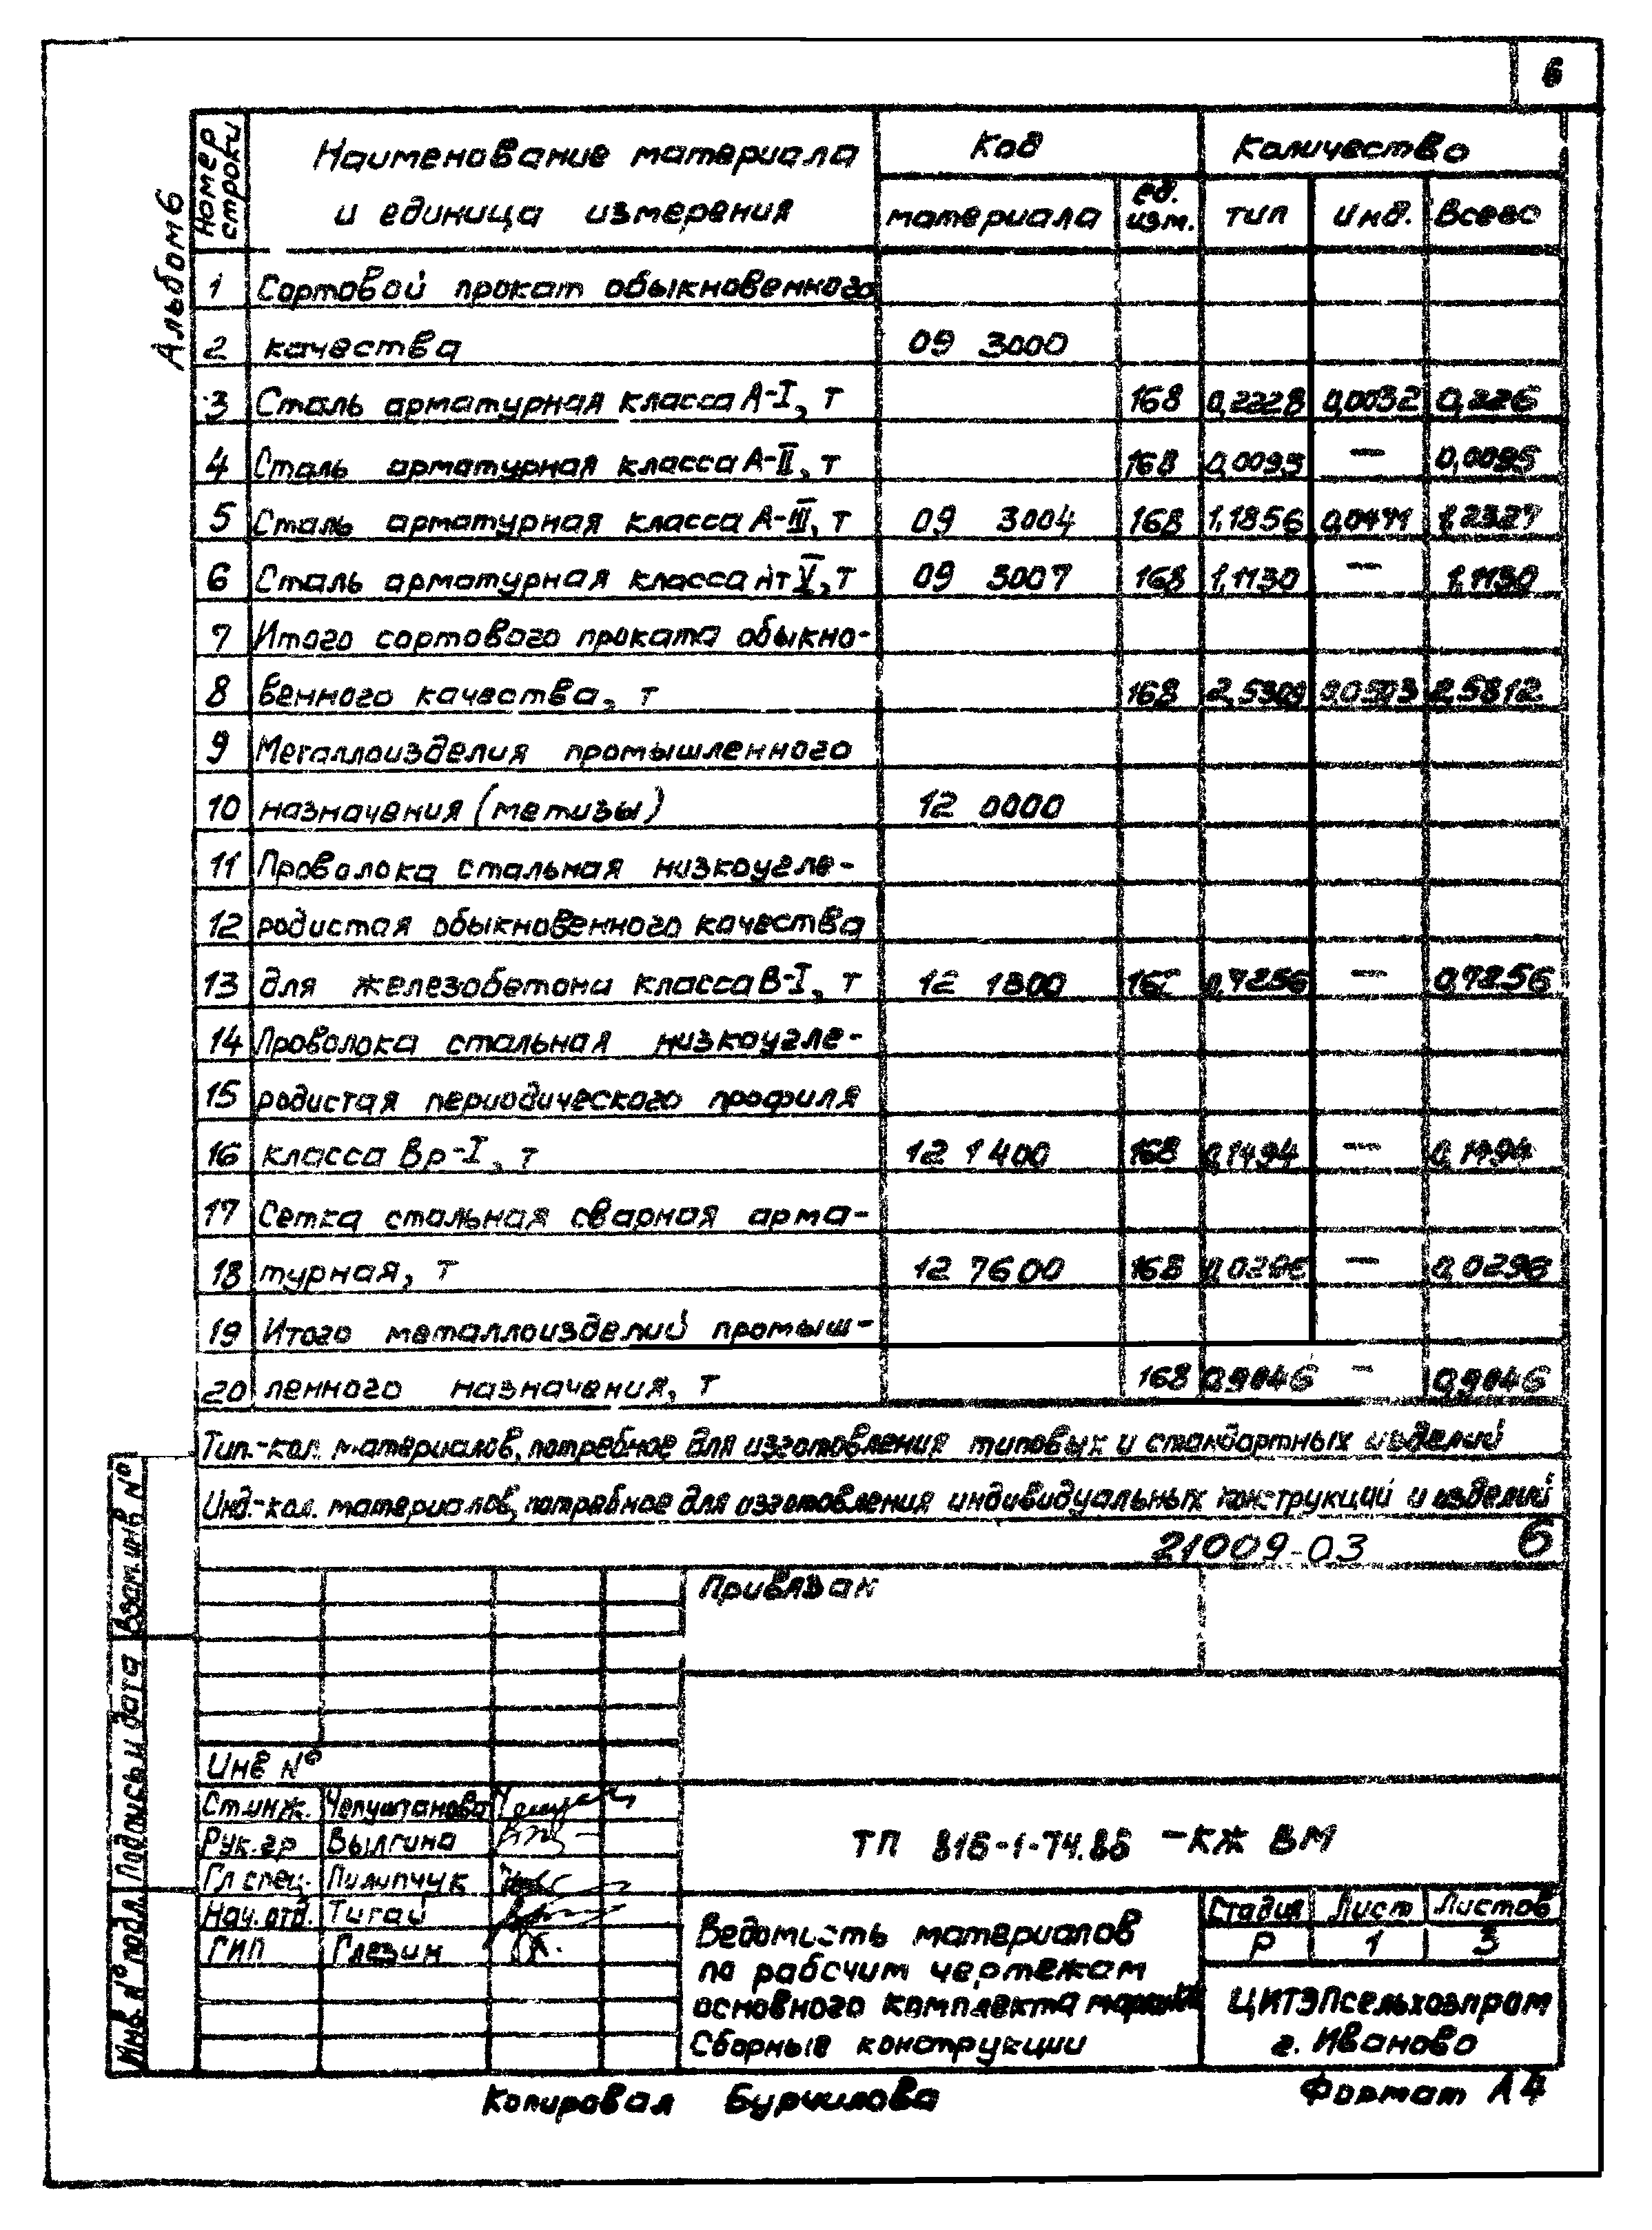 6
Альбом 6
Номер строки
Наименование материала и единица измерения
Код
Количество
материала
ед. изм.
тип
инд.
Всего
1 Сортовой прокат обыкновенного
2 качества 09 3000
3 Сталь арматурная класса А-I, т 168 0,2228 0,0032 0,226
4 Сталь арматурная класса А-II, т 168 0,0095 — 0,0095
5 Сталь арматурная класса А-III, т 09 3004 168 1,1856 0,0471 1,2327
6 Сталь арматурная класса Ат V, т 09 3007 168 1,1130 — 1,1130
7 Итого сортового проката обыкно-
8 венного качества, т 168 2,5309 0,0503 2,5812
9 Металлоизделия промышленного
10 назначения (метизы) 12 0000
11 Проволока стальная низкоугле-
12 родистая обыкновенного качества
13 для железобетона класса В-I, т 12 1300 168 0,7256 — 0,7256
14 Проволока стальная низкоугле-
15 родистая периодического профиля
16 класса Вр-I, т 12 1400 168 0,1494 — 0,1494
17 Сетка стальная сварная арма-
18 турная, т 12 7600 168 0,0296 — 0,0296
19 Итого металлоизделий промыш-
20 ленного назначения, т 168 0,9046 — 0,9046
Тип.-кол. материалов, потребное для изготовления типовых и стандартных изделий
Инд.-кол. материалов, потребное для изготовления индивидуальных конструкций и изделий
21009-03 6
Привязан
Инв №
Ст.инж. Чепуштанова
Рук.гр Вылгина
Гл спец. Пилипчук
Нач.отд. Тигай
ГИП Глезин
ТП 816-1-74.86 -КЖ ВМ
Ведомость материалов
по рабочим чертежам
основного комплекта марки
Сборные конструкции
Стадия Лист Листов
Р 1 3
ЦИТЭПсельхозпром
г. Иваново
Взам.инв №
Подпись и дата
Инв. № подл.
Копировал Бурчилова
Формат А4